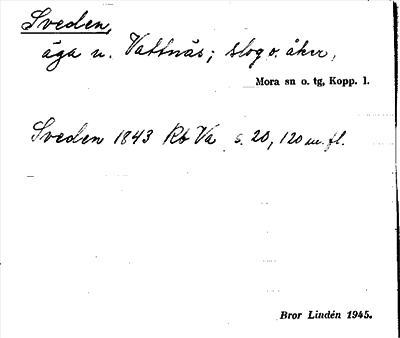 Sveden,
äga u. Vattnäs; slog o. åker,
Mora sn o. tg, Kopp. l.
Sveden 1843 Rb Va s. 20, 120 m. fl.
Bror Lindén 1945.